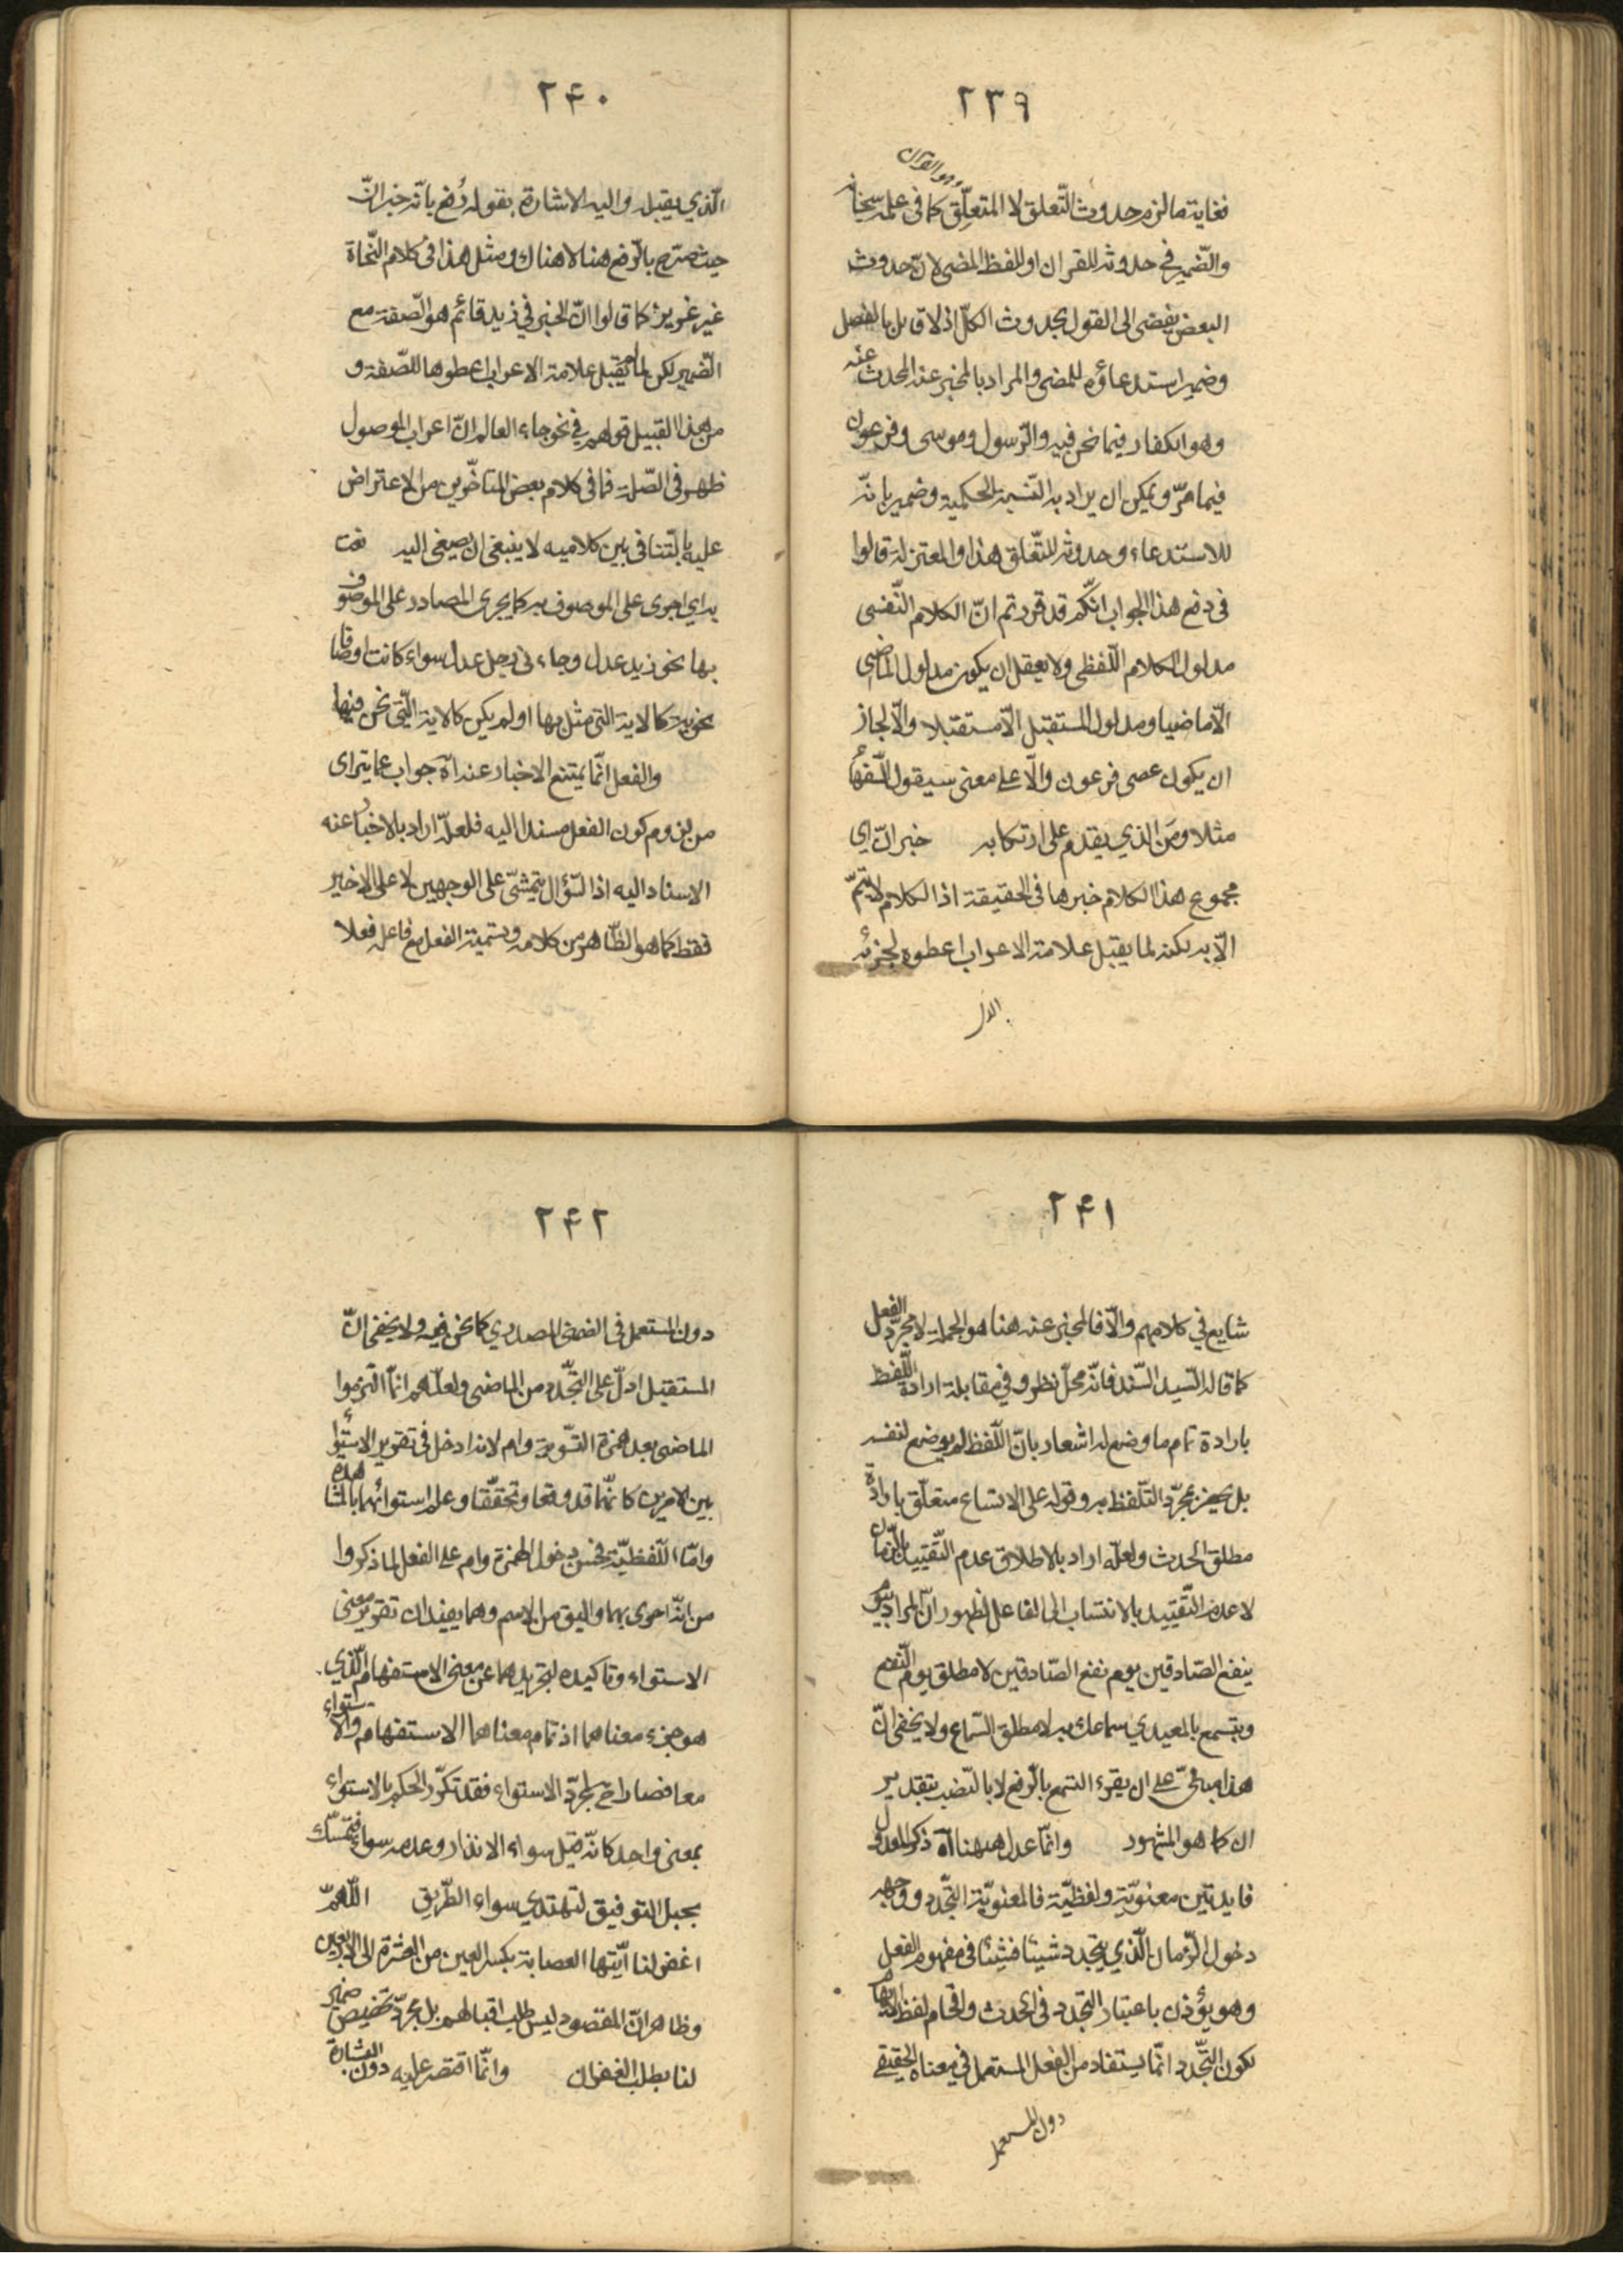 ٢٣٩
وهو القران
فغاية ما لزم حدوث التّعلق لا المتعلّق كما فى علمه سبحانه
والضّمير فى حدوثه للقران او للفظ المضى لانّ حدوث
البعض يفضى الى القول بحدوث الكلّ اذ لا قايل بالفصل
وضمير استدعاؤه للمضى والمراد بالمخبر عنه المحدث عنه
وهو الكفار فيما نحن فيه والرّسول وموسى وفرعون
فيما مرّ ويمكن ان يراد به النّسبة الحكمية وضمير بانّه
للاستدعاء وحدوثه للتّعلق هذا والمعتزلة قالوا
فى دفع هذا الجواب انّكم قد قررتم انّ الكلام النّفسى
مدلول الكلام اللّفظى ولا يعقل ان يكون مدلول الماضى
الّا ماضيا ومدلول المستقبل الّا مستقبلا والّا لجاز
ان يكون عصى فرعون دالّا على معنى سيقول السّفهاء
مثلا ومَن الذي يقدم على ارتكابه خبر انّ اي
مجموع هذا الكلام خبرها فى الحقيقة اذ الكلام لا يتمّ
الّا به لكنه لما يقبل علامة الاعراب اعطوه لجزئه
الذى
٢۴٠
الّذي يقبله واليه الاشارة بقوله رُفع بانّه خبر انّ
حيث صرّح بالرّفع هنا لا هناك ومثل هذا فى كلام النّحاة
غير عزيز كما قالوا انّ الخبر في زيد قائم هو الصّفة مع
الضّمير لكن لما لم يقبل علامة الاعراب اعطوها للصّفة و
من هذا القبيل قولهم في نحو جاء العالم انّ اعراب الموصول
ظهر فى الصّلة فما فى كلام بعض المتاخّرين من الاعتراض
عليه بالتنافى بين كلاميه لا ينبغى ان يصغى اليه نعت
به اي اجرى على الموصوف به كما يجرى المصادر على الموصوف
بها نحو زيد عدل وجاءنى رجل عدل سواء كانت اوصافا
نحوية كالاية التى مثل بها او لم يكن كالاية الّتى نحن فيها
والفعل انّما يمتنع الاخبار عنه اه جواب عما يتراى
من لزوم كون الفعل مسندا اليه فلعلّه اراد بالاخبار عنه
الاسناد اليه اذ السّؤال يتمشّى على الوجهين لا على الاخير
فقط كما هو الظّاهر من كلامه وتسمية الفعل مع فاعله فعلا
٢۴١
شايع في كلامهم والّا فالمخبر عنه هنا هو الجملة لا مجرّد الفعل
كما قاله السّيد السّند فانّه محلّ نظر وفي مقابلة ارادة اللّفظ
بارادة تمام ما وضع له اشعار بانّ اللّفظ لم يوضع لنفسه
بل يحضر بمجرّد التّلفظ به وقوله على الاتساع متعلّق بارادة
مطلق الحدث ولعلّه اراد بالاطلاق عدم التّقييد بالزّمان
لا عدم التّقييد بالانتساب الى الفاعل لظهور انّ المراد بيوم
ينفع الصّادقين يوم نفع الصّادقين لا مطلق يوم النّفع
وبتسمع بالمعيدي سماعك به لا مطلق السّماع ولا يخفى انّ
هذا مبنىّ على ان يقرء التسمع بالرّفع لا بالنّصب بتقدير
ان كما هو المشهور وانّما عدل ههنا اه ذكر للعدول
فايدتين معنويّة ولفظيّة فالمعنويّة التّجدد ووجهه
دخول الزّمان الّذي يتجدد شيئا فشيئا فى مفهوم الفعل
وهو يؤذن باعتبار التجدد فى الحدث واقحام لفظ الايهام
لكون التّجدد انّما يستفاد من الفعل المستعمل في معناه الحقيقے
دون المستعمل
٢۴٢
دون المستعمل فى الضمنى المصدري كما نحن فيه ولا يخفى انّ
المستقبل ادلّ على التّجّدد من الماضى ولعلّهم انّما التزموا
الماضى بعد همزة التّسوية وام لانه ادخل فى تقرير الاستواء
بين الامرين كانّهما قد وقعا وتحقّقا وعلم استوائهما بالمشاهدة
وامّا اللّفظيّة فحسن دخول الهمزة وام على الفعل لما ذكروا
من انّه احرى بهما واليق من الاسم وهما يفيدان تقرير معنى
الاستواء وتاكيده لتجريدهما عن معنى الاستفهام الّذي
هو جزء معناهما اذ تمام معناهما الاستفهام والاستواء
معا فصارا لمجرّد الاستواء فقد تكرّر الحكم بالاستواء
بمعنى واحد كانّه قيل سواء الانذار وعدمه سواء فتمسّك
بحبل التوفيق لتهتدي سواء الطّريق اللّهمّ
اغفر لنا ايّتها العصابة بكسر العين من العشرة الى الاربعين
وظاهر انّ المقصود ليس طلب اقبالهم بل مجرّد تخصيص ضمير
لنا بطلب الغفران وانّما اقتصر عليه دون البشارة